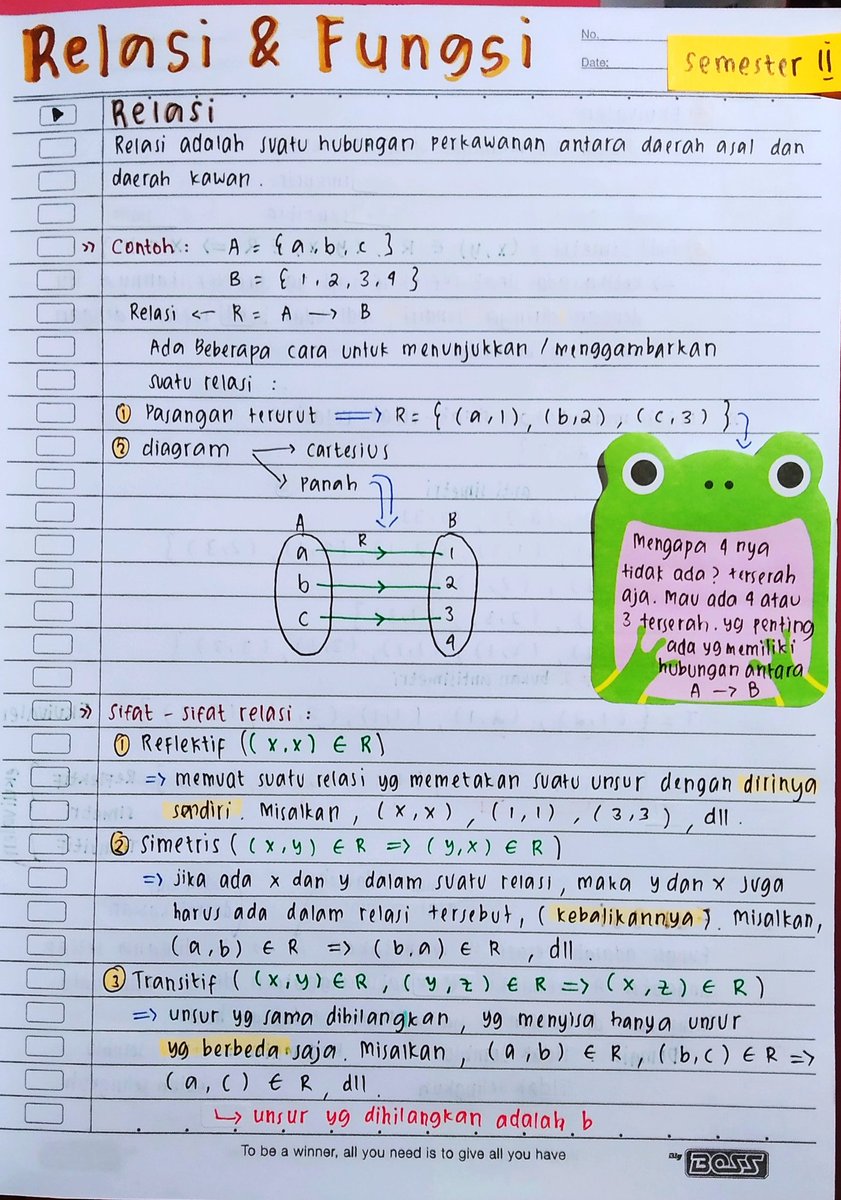 Relasi & Fungsi
No.
Date:
Semester II
Relasi
Relasi adalah suatu hubungan perkawanan antara daerah asal dan
daerah kawan.
>> Contoh: A = {a, b, c }
B = { 1, 2, 3, 4 }
Relasi <- R = A -> B
Ada Beberapa cara untuk menunjukkan / menggambarkan
suatu relasi :
① Pasangan terurut => R = { (a,1), (b,2), (c,3) }
② diagram -> cartesius
-> panah
A R B
a 1
b 2
c 3
4
Mengapa 4 nya
tidak ada? terserah
aja. Mau ada 4 atau
3 terserah. yg penting
ada yg memiliki
hubungan antara
A -> B
>> Sifat - sifat relasi :
① Reflektif ((x,x) ∈ R)
=> memuat suatu relasi yg memetakan suatu unsur dengan dirinya
sendiri. Misalkan, (x,x), (1,1), (3,3), dll.
② Simetris ( (x,y) ∈ R => (y,x) ∈ R )
=> jika ada x dan y dalam suatu relasi, maka y dan x juga
harus ada dalam relasi tersebut, (kebalikannya). Misalkan,
(a,b) ∈ R => (b,a) ∈ R, dll.
③ Transitif ( (x,y) ∈ R, (y,z) ∈ R => (x,z) ∈ R )
=> unsur yg sama dihilangkan, yg menyisa hanya unsur
yg berbeda saja. Misalkan, (a,b) ∈ R, (b,c) ∈ R =>
(a,c) ∈ R, dll.
↳ unsur yg dihilangkan adalah b
To be a winner, all you need is to give all you have
Big BOSS